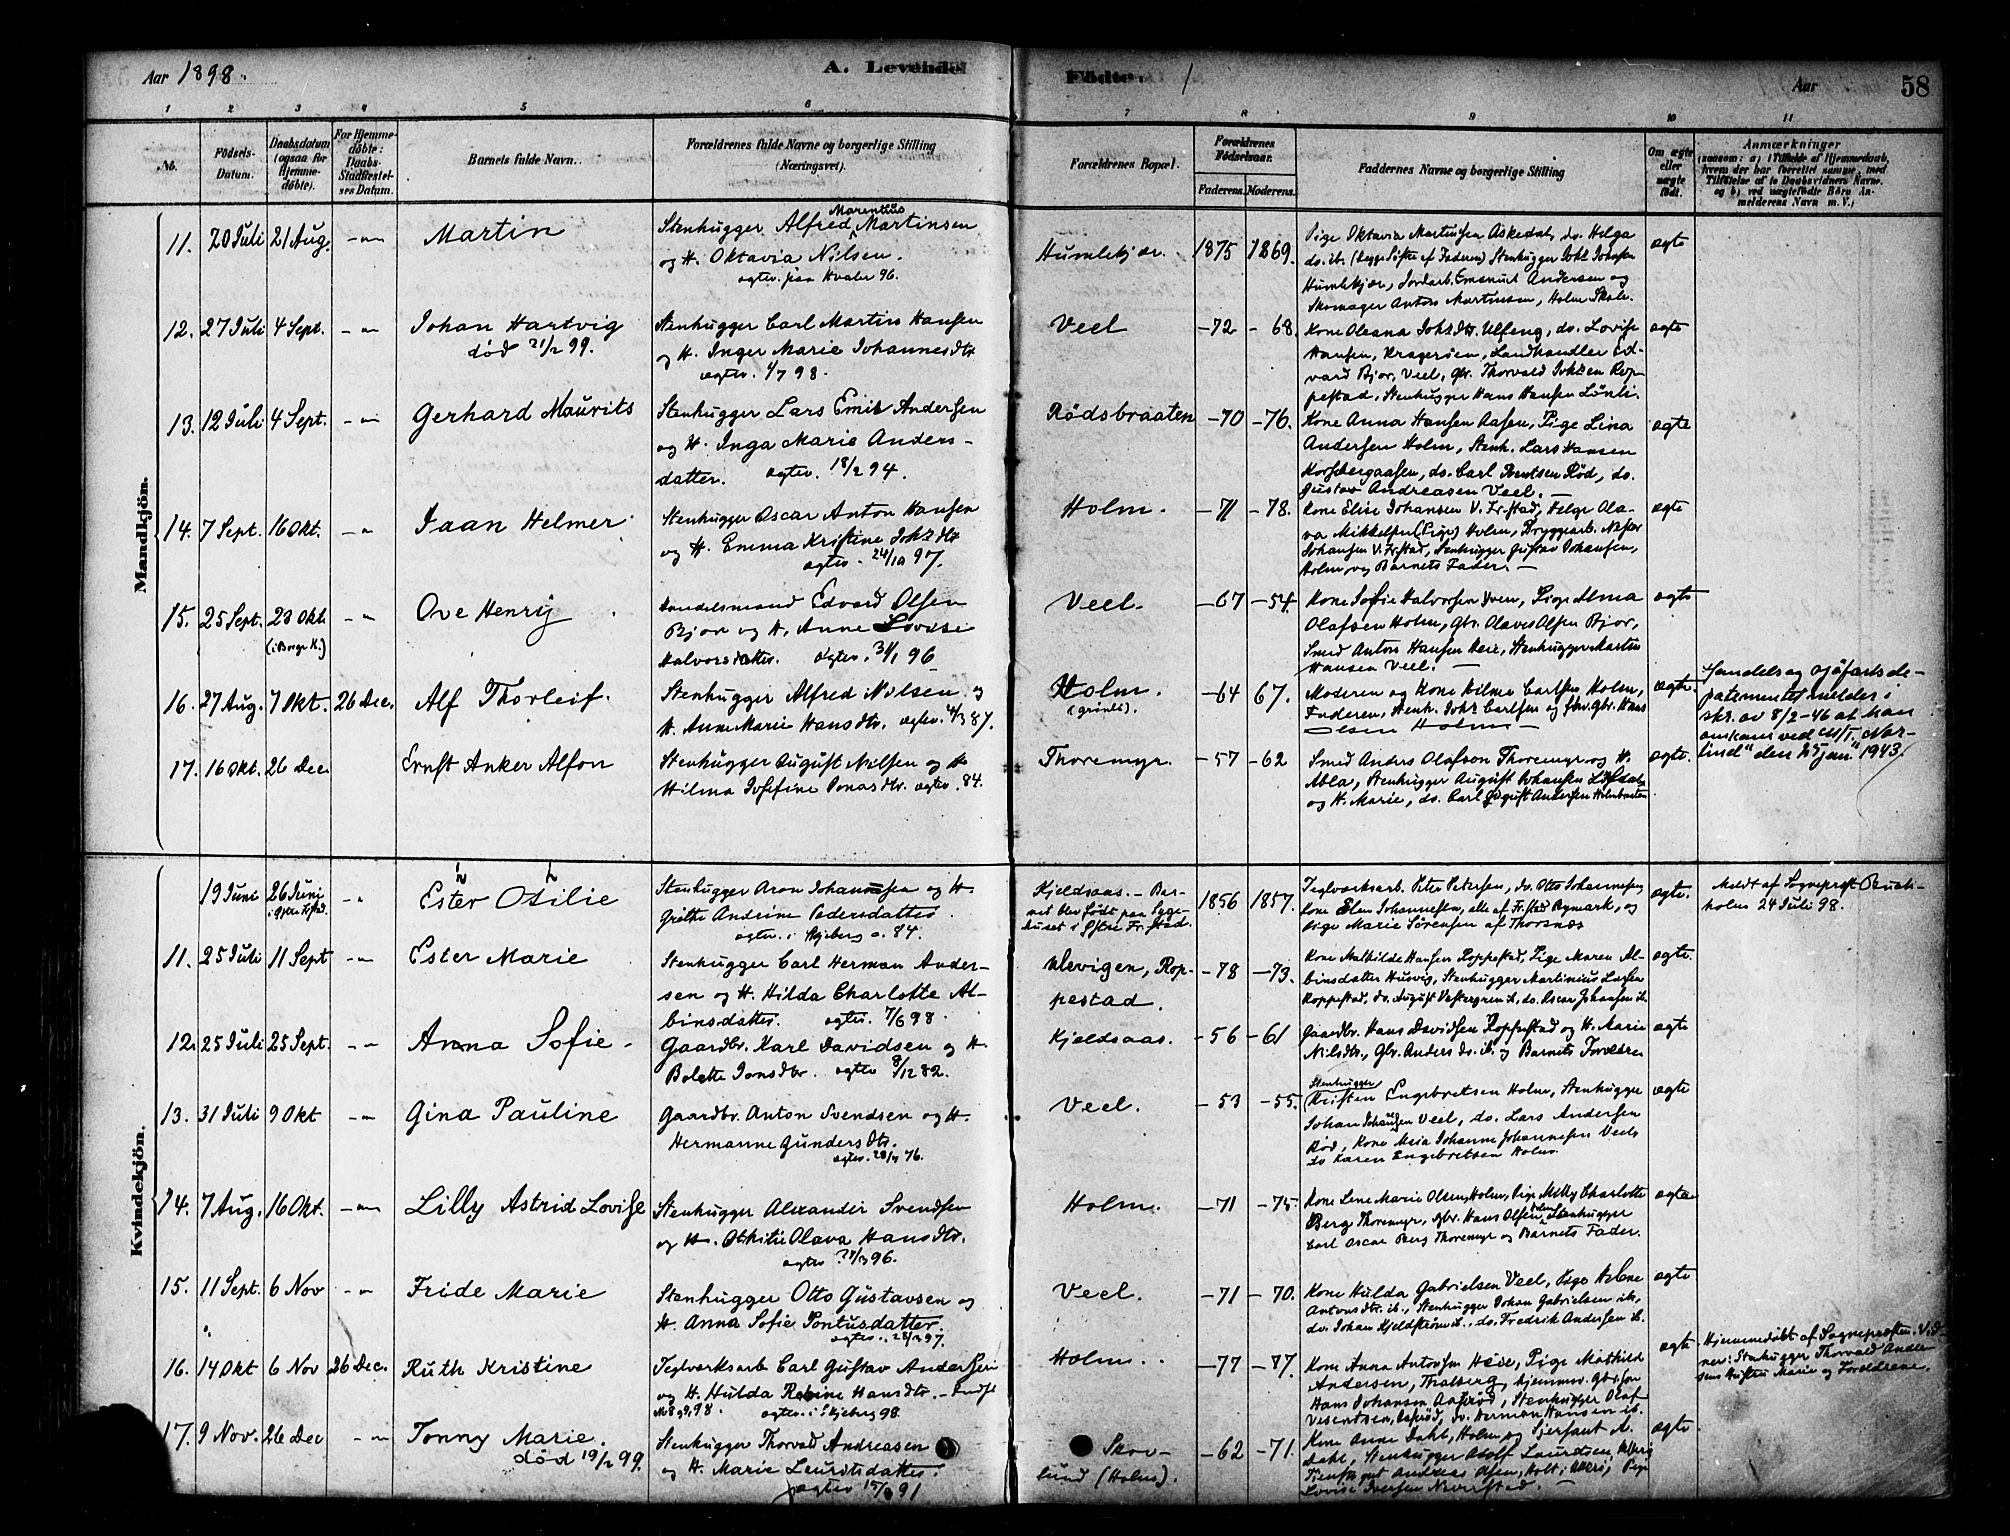 Aar 1898.
A. Levende
Fødte.
Aar
58
1 2 3 4 5 6 7 8 9 10 11
No.
Födsels-Datum.
Daabsdatum (ogsaa for Hjemme-döbte).
For Hjemme-döbte: Daabs-Stadfæstel-ses Datum.
Barnets fulde Navn.
Forældrenes fulde Navne og borgerlige Stilling (Næringsvei).
Forældrenes Bopæl.
Forældrenes Födselsaar.
Faderens. Moderens.
Faddernes Navne og borgerlige Stilling
Om ægte eller uægte født.
Anmærkninger
(saasom: a) i Tilfælde af Hjemmedaab, hvem der har forrettet samme, med Tilföielse af to Daabsvidners Navne, og b) ved uægtefödte Börn An-melderens Navn m. V.)
Mandkjön.
11. 20 Juli 21 Aug. Martin
Stenhugger Alfred Marentius Martinsen
og H. Oktavia Nilsen.
ægtev. paa Hvaler 96.
Humlekjær. 1875 1869.
Pige Oktavia Martinsen Askedal, do. Helga
Humlekjær, Jordarb. Emanuel Andersen og
Skomager Anton Martinsen, Holm Skole.
ægte
12. 27 Juli 4 Sept. Johan Hartvig
død 21/2 99.
Stenhugger Carl Martin Hansen
og H. Inger Marie Johannesdtr
ægtev. 4/7 98.
Veel -72 -68.
Hansen, Kragerøen, Landhandler Ed-
vard Bjor, Veel, Gbr. Thorvald Johsen Rop-
pestad, Stenhugger Hans Hansen Lönli.
ægte
13. 12 Juli 4 Sept. Gerhard Maurits
Stenhugger Lars Emil Andersen
og H. Inga Marie Anders-
datter. ægtev. 18/2 94.
Rødsbraaten -70 -76.
Kone Anna Hansen Aasen, Pige Lina
Andersen Holm, Stenh. Lars Hansen
Korsbergaasen, do. Carl Berntsen Rød, do.
Gustav Andreasen Veel.
ægte
14. 7 Sept. 16 Okt. Isaan Helmer
Stenhugger Oscar Anton Hansen
og H. Emma Kristine Johsdtr
ægtev. 24/10 97.
Holm. -71 -78.
Kone Elise Johansen V. Fr.stad,
Johansen V. Fr.stad, Stenhugger Gustav Johansen,
Holm, og Barnets Fader.
ægte
15. 25 Sept. 23 Okt (i Borge K.) Ove Henry
Handelsmand Edvard Olsen
Bjor og H. Anne Lovise
Halvorsdatter. ægtev. 3/1 96
Veel. -67 -54.
Kone Sofie Halvorsen Hven, Pige Alma
Olafsen Holm, Gbr. Olaves Olsen Bjor,
Smed Anton Hansen Heie, Stenhugger Martin
Hansen Veel.
ægte
16. 27 Aug. 7 Okt. 26 Dec. Alf Thorleif.
Stenhugger Alfred Nilsen og
H. Anne Marie Hansdtr. ægtev. 4/3 87.
Holm. (grønli). -64 67.
Moderen og Kone Hilma Carlsen Holm,
Faderen, Stenh. Johs Carlsen og Gbr. Hans
Olsen Holm
ægte.
Handels og sjøfartsde-
patementet melder i
skr. av 8/2-46 at han
omkom ved M/T. "Nor-
lind" den 25 jan. 1943.
17. 16 Okt. 26 Dec. Ernst Anker Alfon
Stenhugger August Nilsen og H
Hilma Josefine Jonasdtr. ægtev. 84.
Thoremyr. -57 -62
Smed Anders Olafson Thoremyr og H.
Abla, Stenhugger August Johansen
og H. Marie, do. Carl August Andersen Holmbraaten
ægte.
Kvindekjön.
19 Juni 26 Juni Ester Otilie
Stenhugger Aron Johannesen og H.
Grethe Andrine Pedersdatter
ægtev. i Skjeberg c. 84.
Kjeldsaas. - Bar-
net blev født paa Syge-
huset i Østre Fr.stad.
1856 1857.
Teglværksarb. Peter Petersen, do. Otto Johannesen
Kone Elen Johannesen, alle af Fr.stad Bymark, og
Pige Marie Sørensen af Thorsnæs
ægte.
Meldt af Sogneprest
holm 24 Juli 98.
11. 25 Juli 11 Sept Ester Marie
Stenhugger Carl Herman Ander-
sen og H. Hilda Charlotte Al-
binsdatter. ægtev. 7/6 98.
Ulevigen, Rop-
pestad. -78 -73.
Kone Mathilde Hansen Roppestad, Pige Maren Al-
binsdatter Husvig, Stenhugger Martinius Larsen
Roppestad, do. August Vestergren ib., do. Oscar Johansen ib.
ægte.
12. 25 Juli 25 Sept. Anna Sofie
Gaardbr. Karl Davidsen og H.
Bolette Jonsdtr. ægtev 8/12 82.
Kjeldsaas. -56 -61
Gaardbr. Hans Davidsen Roppestad og H. Marie
Nilsdtr., Gbr. Anders do. ib. og Barnets Forældre
ægte
13. 31 Juli 9 Okt Gina Pauline
Gaardbr. Anton Svendsen og H.
Hermanne Gundersdtr.
ægtev. 28/7 76.
Veel. -53 -55.
Stenhugger
Kristen Engebretsen Holm, Stenhugger
Johan Johansen Veel, do. Lars Andersen
Rød, Kone Maia Johanne Johannesen Veel,
do Karen Engebretsen Holm.
ægte
14. 7 Aug. 16 Okt. Lilly Astrid Lovise
Stenhugger Alexander Svendsen
og H. Othilie Olava Hansdtr.
Holm. -71 -75.
Kone Lene Marie Olsen, Holm, Pige Milly Charlotte
Berg Thoremyr, Gbr. Hans Olsen Holm, Stenhugger
Carl Oscar Berg Thoremyr og Barnets Fader.
ægte
15. 11 Sept. 6 Nov Fride Marie
Stenhugger Otto Gustavsen og
H. Anna Sofie Pontusdatter.
Veel. -71 -70.
Kone Hulda Gabrielsen Veel, Pige Helene
Antonsdtr. ib., Stenhugger Johan Gabrielsen ib.,
do. Johan Kjeldstrøm ib., do. Fredrik Andersen ib.
ægte
16. 14 Okt 6 Nov 26 Dec. Ruth Kristine
Teglverksarb Carl Gustav Andersen
og H. Hulda Hansdtr.
ægtev. i Skjeberg 98.
Holm. -77 -77.
Kone Anna Antonsen Heie, Pige Mathild
Andersen, Thalberg, Hjemmev. Gbr.søn
Hans Johansen Aasrød, Stenhugger Olaf
Aasrød, do. Herman Hansen ib.
ægte
Hjemmedøbt af Sognepresten. Vid-
ner: Stenhugger Thorvald Ander-
sens Hustru Marie og Forældrene.
17. 9 Nov. 26 Dec Tonny Marie.
død 19/2 99.
Stenhugger Thorvald Andreasen
og H. Marie Lauritsdatter.
Skov-
lund (Holm). -62 -71.
Kone Anne Dahl, Holm, og
Dahl, Stenhugger Adolf Lauritsen,
Andreas Olsen, Holt i
Lovise Iversen
ægte